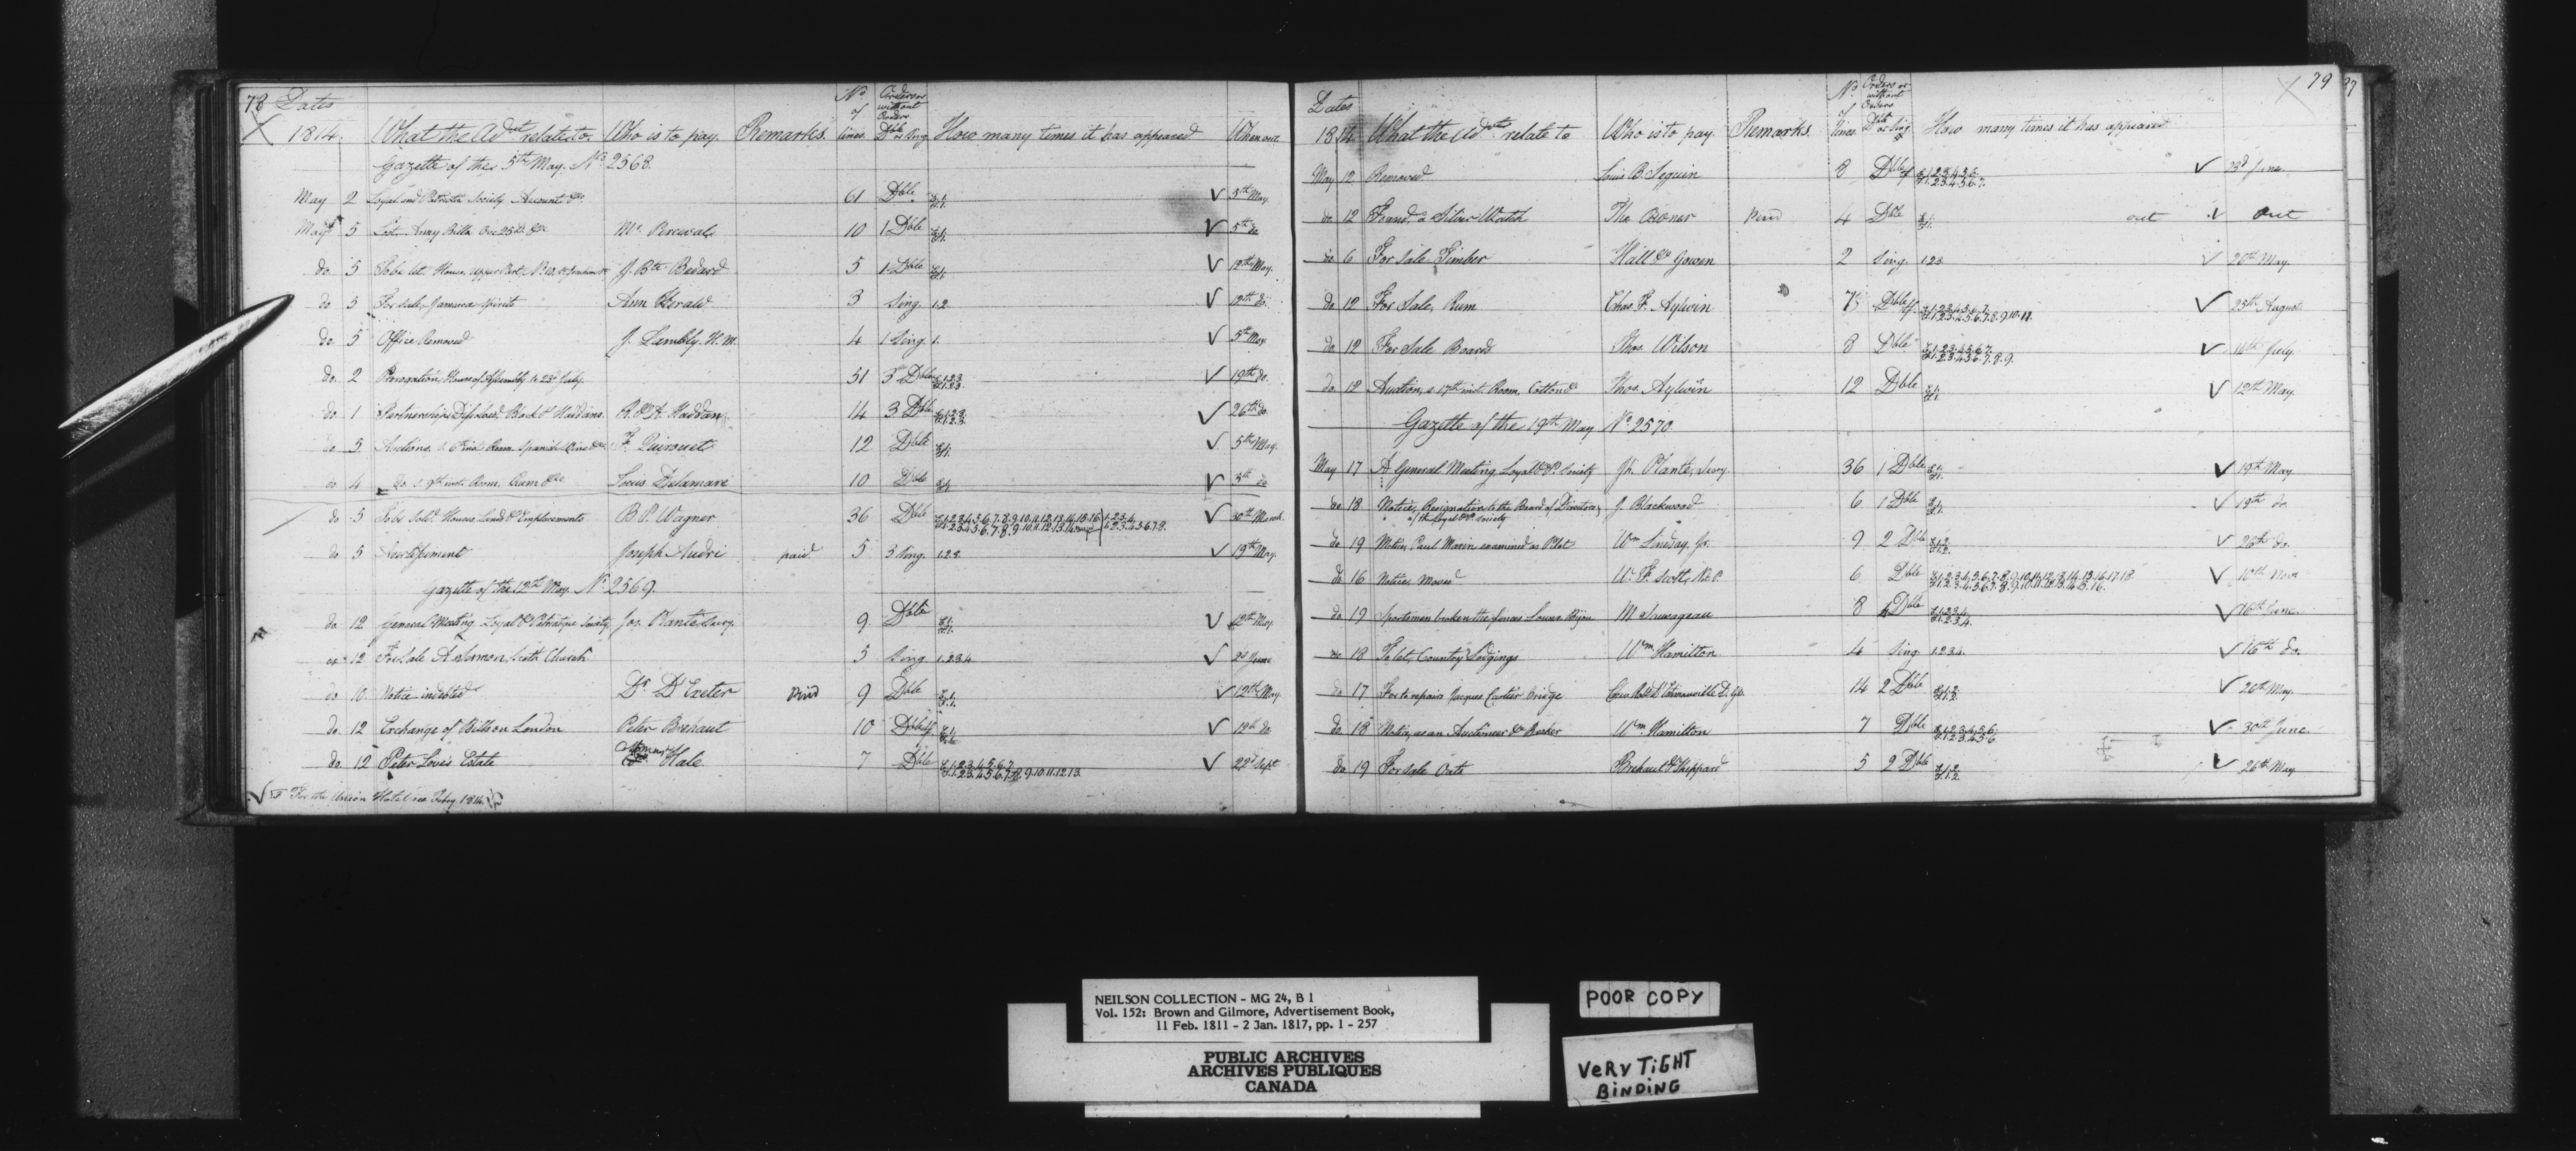 78 Dates
1814. What the Advt relate to. Who is to pay. Remarks. No of lines. Orders or without Orders Dble or Sing. How many times it has appeared When out.
Gazette of the 5th May. No 2568.
May 2 Loyal and Patriotic Society Account &c. 61 Dble E.1. F.1. 5th May.
May 5 Lost Army Bills One 25 Dr. &c Mr. Perceval 10 1 Dble E.1. F.1. 5th do
do 5 To be let House, upper Part, No. 10. J. Bte Bedard 5 1 Dble 12th May.
do 5 For Sale, Jamaica Spirits Ann Herald 3 Sing. 1.2. 12th do.
do 5 Office Removed J. Lambly. H.M. 4 1 Sing. 1. 5th May
do. 2 Prorogation, House of Assembly to 23d July. 51 3 Dble E.1.2.3. F.1.2.3. 19th do.
do 1 Partnership Dissolved Black & Haddan. R. & A Haddan 14 3 Dble E.1.2.3. F.1.2.3. 26th do.
do 5. Auctions. Room Spanish Wine &c. F. Quirouet 12 Dble E.1. F.1. 5th May.
do 4 do Room, Rum &c Louis Delamare 10 Dble 5th do
do 5 To be Sold Houses Lands & Emplacements B. P. Wagner 36 Dble 30th March
do 5 Avertissement Joseph Audri paid 5 3 Sing. 1.2.3. 19th May.
Gazette of the 12th May. No 2569.
do. 12 General Meeting Loyal & Patriotique Society. Jos. Plante, Secry. 9. Dble E.1. F.1. 12th May
do 12 For Sale A Sermon, Scotch Church. 5 Sing 1.2.3.4 2d June
do 10 Notice indebted Dr. D'Exeter Paid 9 Dble E.1. F.1. 12th May.
do. 12 Exchange of Bills on London Peter Brehaut 10 Dble 12th do
do. 12 Peter Lovis Estate Hale 7 Dble E.1.2.3.4.5.6.7. F.1.2.3.4.5.6.7.8.9.10.11.12.13. 22d Sept
For the Union Hotel see Feby. 1814.
79
Dates
1814. What the Advts relate to Who is to pay. Remarks. No. of lines. Orders or without Orders. Dble or Sing How many times it has appeared
May 12 Removed Louis B. Seguin 8 Dble E.1.2.3.4.5.6. F.1.2.3.4.5.6.7. 23d June.
do 12 Found, a Silver Watch Tho. Boner Paid 4 Dble E.1. F.1. out out
do 6 For Sale Timber Hall & Gowen 2 Sing. 1.2.3. 26th May.
do 12 For Sale, Rum Chas. F. Aylwin 7 Dble E.1.2.3.4.5.6.7. F.1.2.3.4.5.6.7.8.9.10.11. 25th August
do 12 For Sale Boards Thos. Wilson 8 Dble E.1.2.3.4.5.6.7. F.1.2.3.4.5.6.7.8.9. 14th July.
do 12 Auction, 17th inst. Room, Cotton &c Thos. Aylwin 12 Dble E.1. F.1. 12th May.
Gazette of the 19th May No. 2570.
May 17 A General Meeting Loyal & P. Society Js. Plante, Secry. 36 1 Dble E.1. F.1. 19th May
do 18 Notice, Resignation to the Board of Directors, of the Loyal & P. Society J. Blackwood 6 1 Dble E.1. F.1. 19th do.
do 19 Notice, Paul Marin examined as Pilot Wm Lindsay. Jr. 9 2 Dble E.1.2. F.1.2. 26th do
do 16 Notice moved W. F. Scott, N.P. 6 Dble 10th Novr
do 19 Sportsmen broken the fences Lower Bijou M Sauvageau 8 4 Dble E.1.2.3.4. F.1.2.3.4. 16th June.
do 18 To let, Country Lodgings Wm Hamilton 4 Sing. 1.2.3.4. 16th do.
do 17 For to repair Jacques Cartier Bridge 14 2 Dble E.1.2. F.1.2. 26th May.
do. 18 Notice, as an Auctioneer & Broker Wm. Hamilton 7 Dble E.1.2.3.4.5.6. F.1.2.3.4.5.6. 30th June.
do 19 For Sale Oats Brehaut & Sheppard 5 2 Dble E.1.2. F.1.2. 26th May
NEILSON COLLECTION - MG 24, B 1
Vol. 152: Brown and Gilmore, Advertisement Book,
11 Feb. 1811 - 2 Jan. 1817, pp. 1 - 257
PUBLIC ARCHIVES
ARCHIVES PUBLIQUES
CANADA
POOR COPY
VeRy TiGHT
BiNDiNG